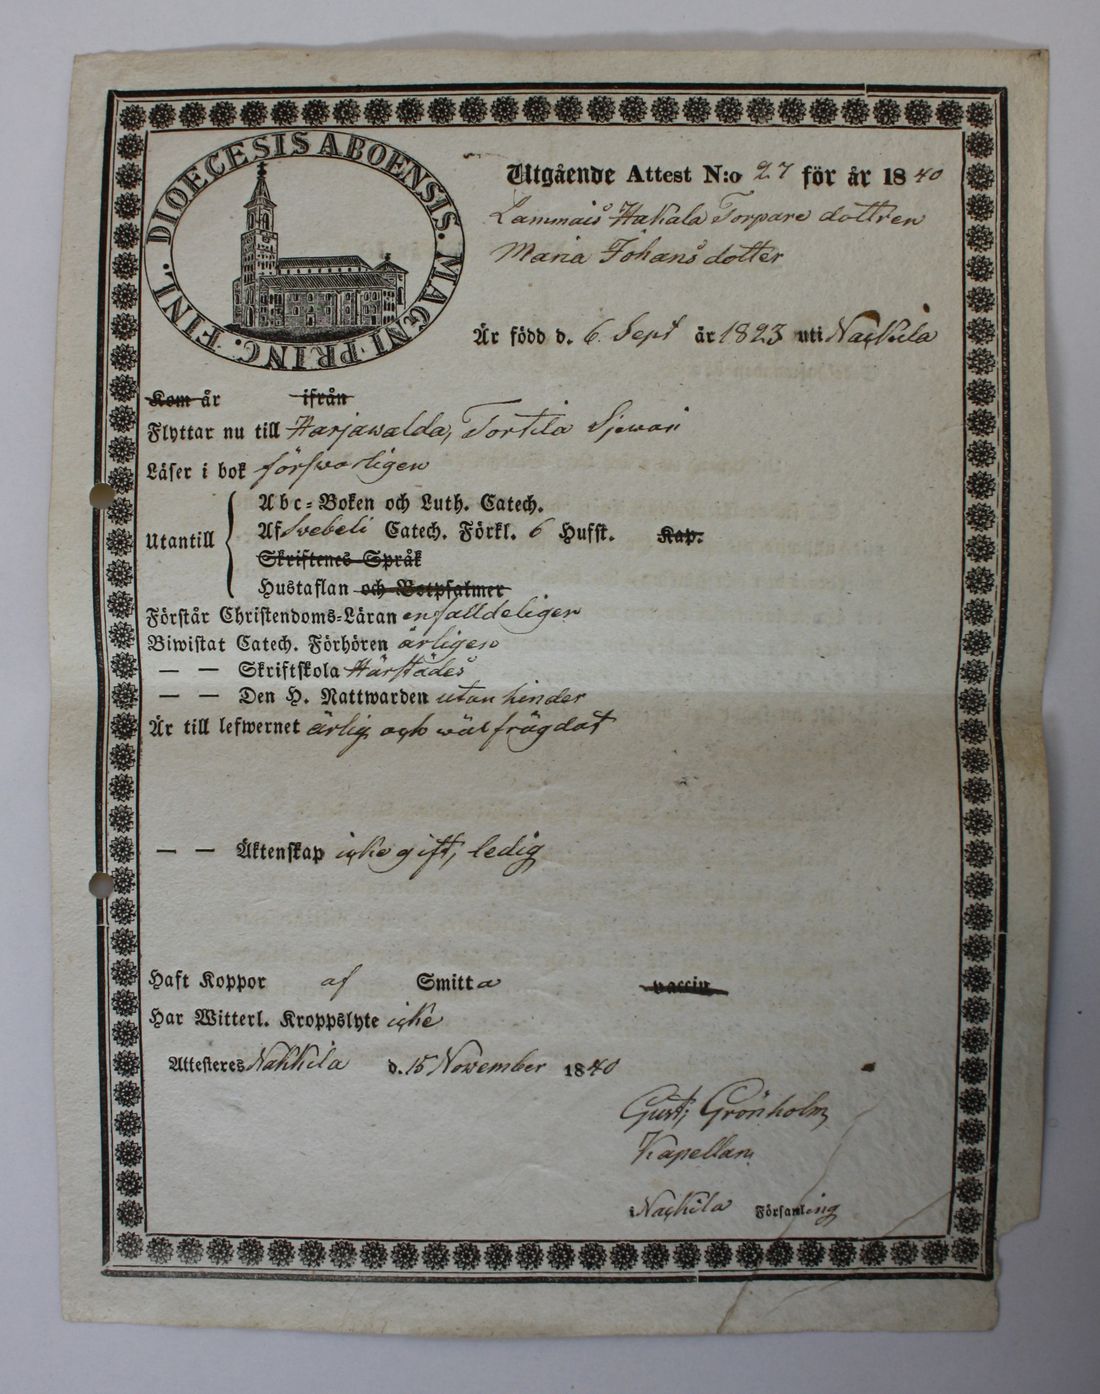 DIOECESIS ABOENSIS. MAGNI PRINC. FINL.
Utgående Attest N:o 27 för år 1840
Lammais Hakala Torpare dottren
Maria Johans dotter
Är född d. 6 Sept år 1823 uti Nackila
Kom år ifrån
Flyttar nu till Harjawalda, Tortila
Läser i bok försvarligen
Abc-Boken och Luth. Catech.
Utantill
Af Svebeli Catech. Förkl. 6 Hufst. Kap.
Skriftenes Språk
Hustaflan och Botpsalmer
Förstår Christendoms-Läran enfalldeligen
Biwistat Catech. Förhören årligen
— — Skriftskola Härstädes
— — Den H. Nattwarden utan hinder
Är till lefwernet ärlig och wälfrägdat
— — Äktenskap icke gift, ledig
Haft Koppor af Smitta vaccin
Har Witterl. Kroppslyte icke
Attesteres Nakkila d. 15 November 1840
Gust: Grönholm
Kapellan
i Nackila Församling